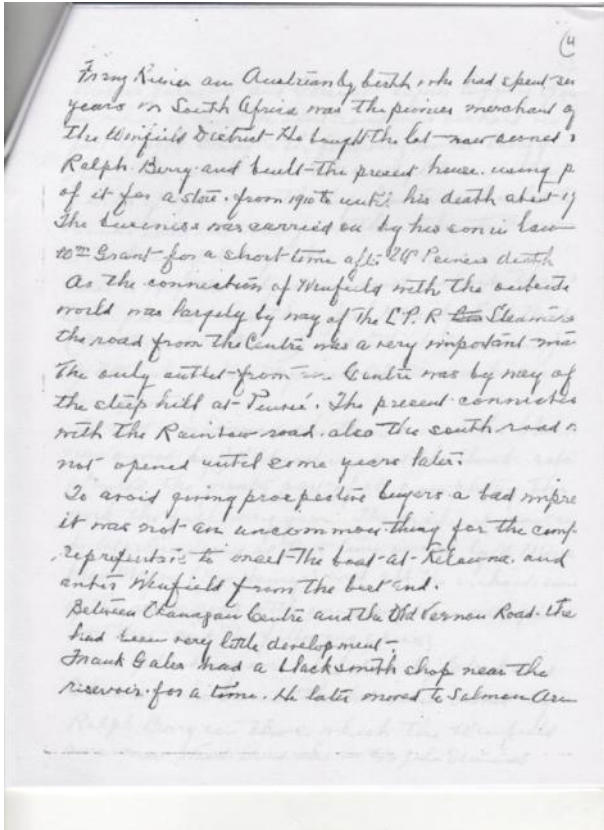 (4
Franz Reiner an Austrian by birth who had spent
years in South Africa was the pioneer merchant of
the Winfield District He bought the lot now owned
Ralph Berry and built the present house. using p
of it for a store. from 1910 to until his death about 19
The business was carried on by his son in law
Wm Grant for a short time after Mr death
As the connection of Winfield with the outside
world was largely by way of the C.P.R Steamers
the road from the Centre was a very important
The only outlet from Centre was by way of
the steep hill at The present connection
with the Rainbow road. also the south road
not opened until some years later.
To avoid giving prospective buyers a bad impre
it was not an uncommon thing for the comp-
to meet the boat at Kelowna and
enter Winfield from the best end.
Between Okanagan Centre and the Old Vernon Road the
had been very little development-
Frank Gales had a blacksmith shop near the
reservoir for a time. He later moved to Salmon Arm